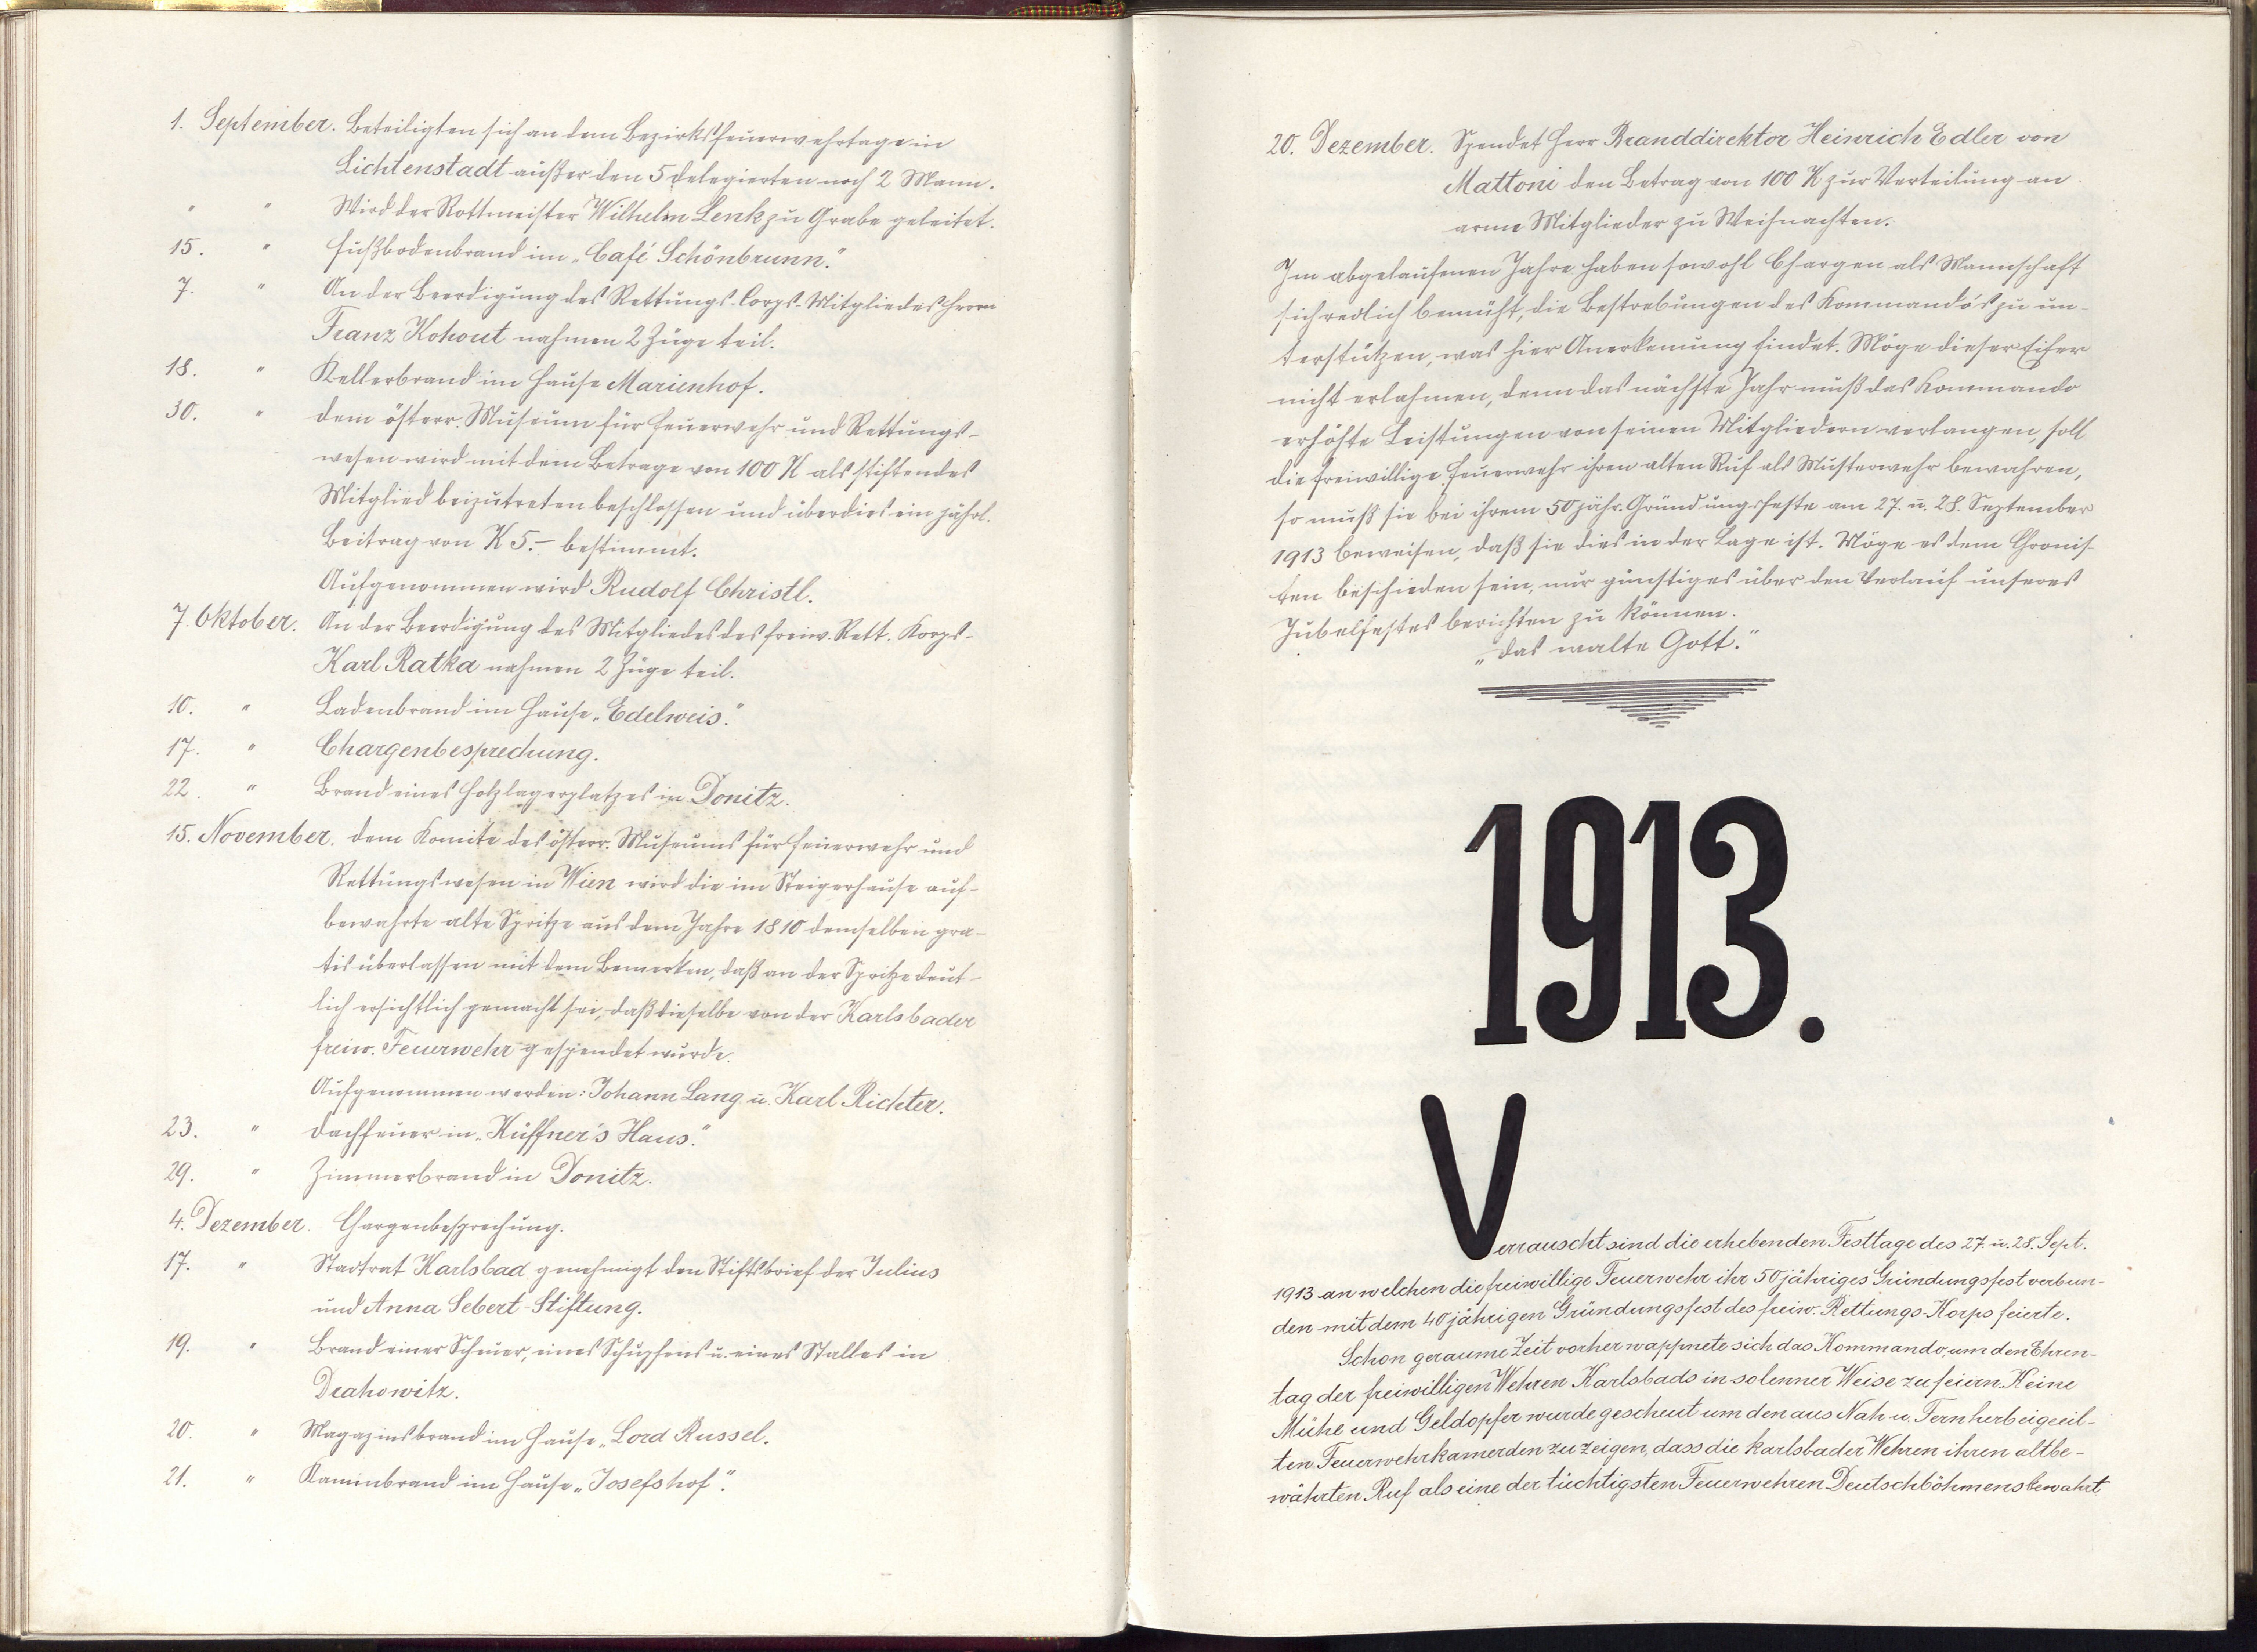 1. September. Beteiligten sich an dem Bezirksfeuerwehrtage in
Lichtenstadt außer den 5 Delegierten noch 2 Mann.
" " Wird der Rottmeister Wilhelm Lenk zu Grabe geleitet.
15. " Fußbodenbrand im „Café Schönbrunn."
7. " An der Beerdigung des Rettungs-Corps-Mitgliedes Herrn
Franz Kohout nahmen 2 Züge teil.
18. " Kellerbrand im Hause Marienhof.
30. " Dem österr. Museum für Feuerwehr und Rettungs-
wesen wird mit dem Betrage von 100 K als stiftendes
Mitglied beizutreten beschlossen und überdies ein jährl.
Beitrag von K 5.- bestimmt.
Aufgenommen wird Rudolf Christl.
7. Oktober. An der Beerdigung des Mitgliedes des freiw. Rett. Korps-
Karl Ratka nahmen 2 Züge teil.
10. " Ladenbrand im Hause „Edelweis."
17. " Chargenbesprechung.
22. " Brand eines Holzlagerplatzes in Donitz.
15. November. Dem Komite des österr. Museums für Feuerwehr und
Rettungswesen in Wien wird die im Steigerhause auf-
bewahrte alte Spritze aus dem Jahre 1810 demselben gra-
tis überlassen mit dem Bemerken, daß an der Spritze deut-
lich ersichtlich gemacht sei, daß dieselbe von der Karlsbader
freiw. Feuerwehr gespendet wurde.
Aufgenommen werden: Johann Lang u. Karl Richter.
23. " Dachfeuer in „Küffner's Haus."
29. " Zimmerbrand in Donitz.
4. Dezember. Chargenbesprechung.
17. " Stadtrat Karlsbad genehmigt den Stiftsbrief der Julius
und Anna Sebert-Stiftung.
19. " Brand einer Scheuer, eines Schupfens u. eines Stalles in
Drahowitz.
20. " Magazinsbrand im Hause „Lord Russel.
21. " Kaminbrand im Hause „Josefshof".
20. Dezember. Spendet Herr Branddirektor Heinrich Edler von
Mattoni den Betrag von 100 K zur Verteilung an
arme Mitglieder zu Weihnachten.
Im abgelaufenen Jahre haben sowohl Chargen als Mannschaft
sich redlich bemüht, die Bestrebungen des Kommando's zu un-
terstützen, was hier Anerkennung findet. Möge dieser Eifer
nicht erlahmen, denn das nächste Jahr muß das Kommando
erhöhte Leistungen von seinen Mitgliedern verlangen, soll
die freiwillige Feuerwehr ihren alten Ruf als Musterwehr bewahren,
so muß sie bei ihrem 50 jähr. Gründungsfeste am 27. u. 28. September
1913 beweisen, daß sie dies in der Lage ist. Möge es dem Chronis-
ten beschieden sein, nur günstiges über den Verlauf unseres
Jubelfestes berichten zu können.
„Das walte Gott."
1913.
Verrauscht sind die erhebenden Festtage des 27. u. 28. Sept.
1913 an welchen die freiwillige Feuerwehr ihr 50 jähriges Gründungsfest verbun-
den mit dem 40 jährigen Gründungsfest des freiw. Rettungs-Korps feierte.
Schon geraume Zeit vorher wappnete sich das Kommando, um den Ehren-
tag der freiwilligen Wehren Karlsbads in solenner Weise zu feiern. Keine
Mühe und Geldopfer wurde gescheut um den aus Nah u. Fern herbeigeeil-
ten Feuerwehrkamerden zu zeigen, dass die Karlsbader Wehren ihren altbe-
währten Ruf als eine der tüchtigsten Feuerwehren Deutschböhmens bewahrt